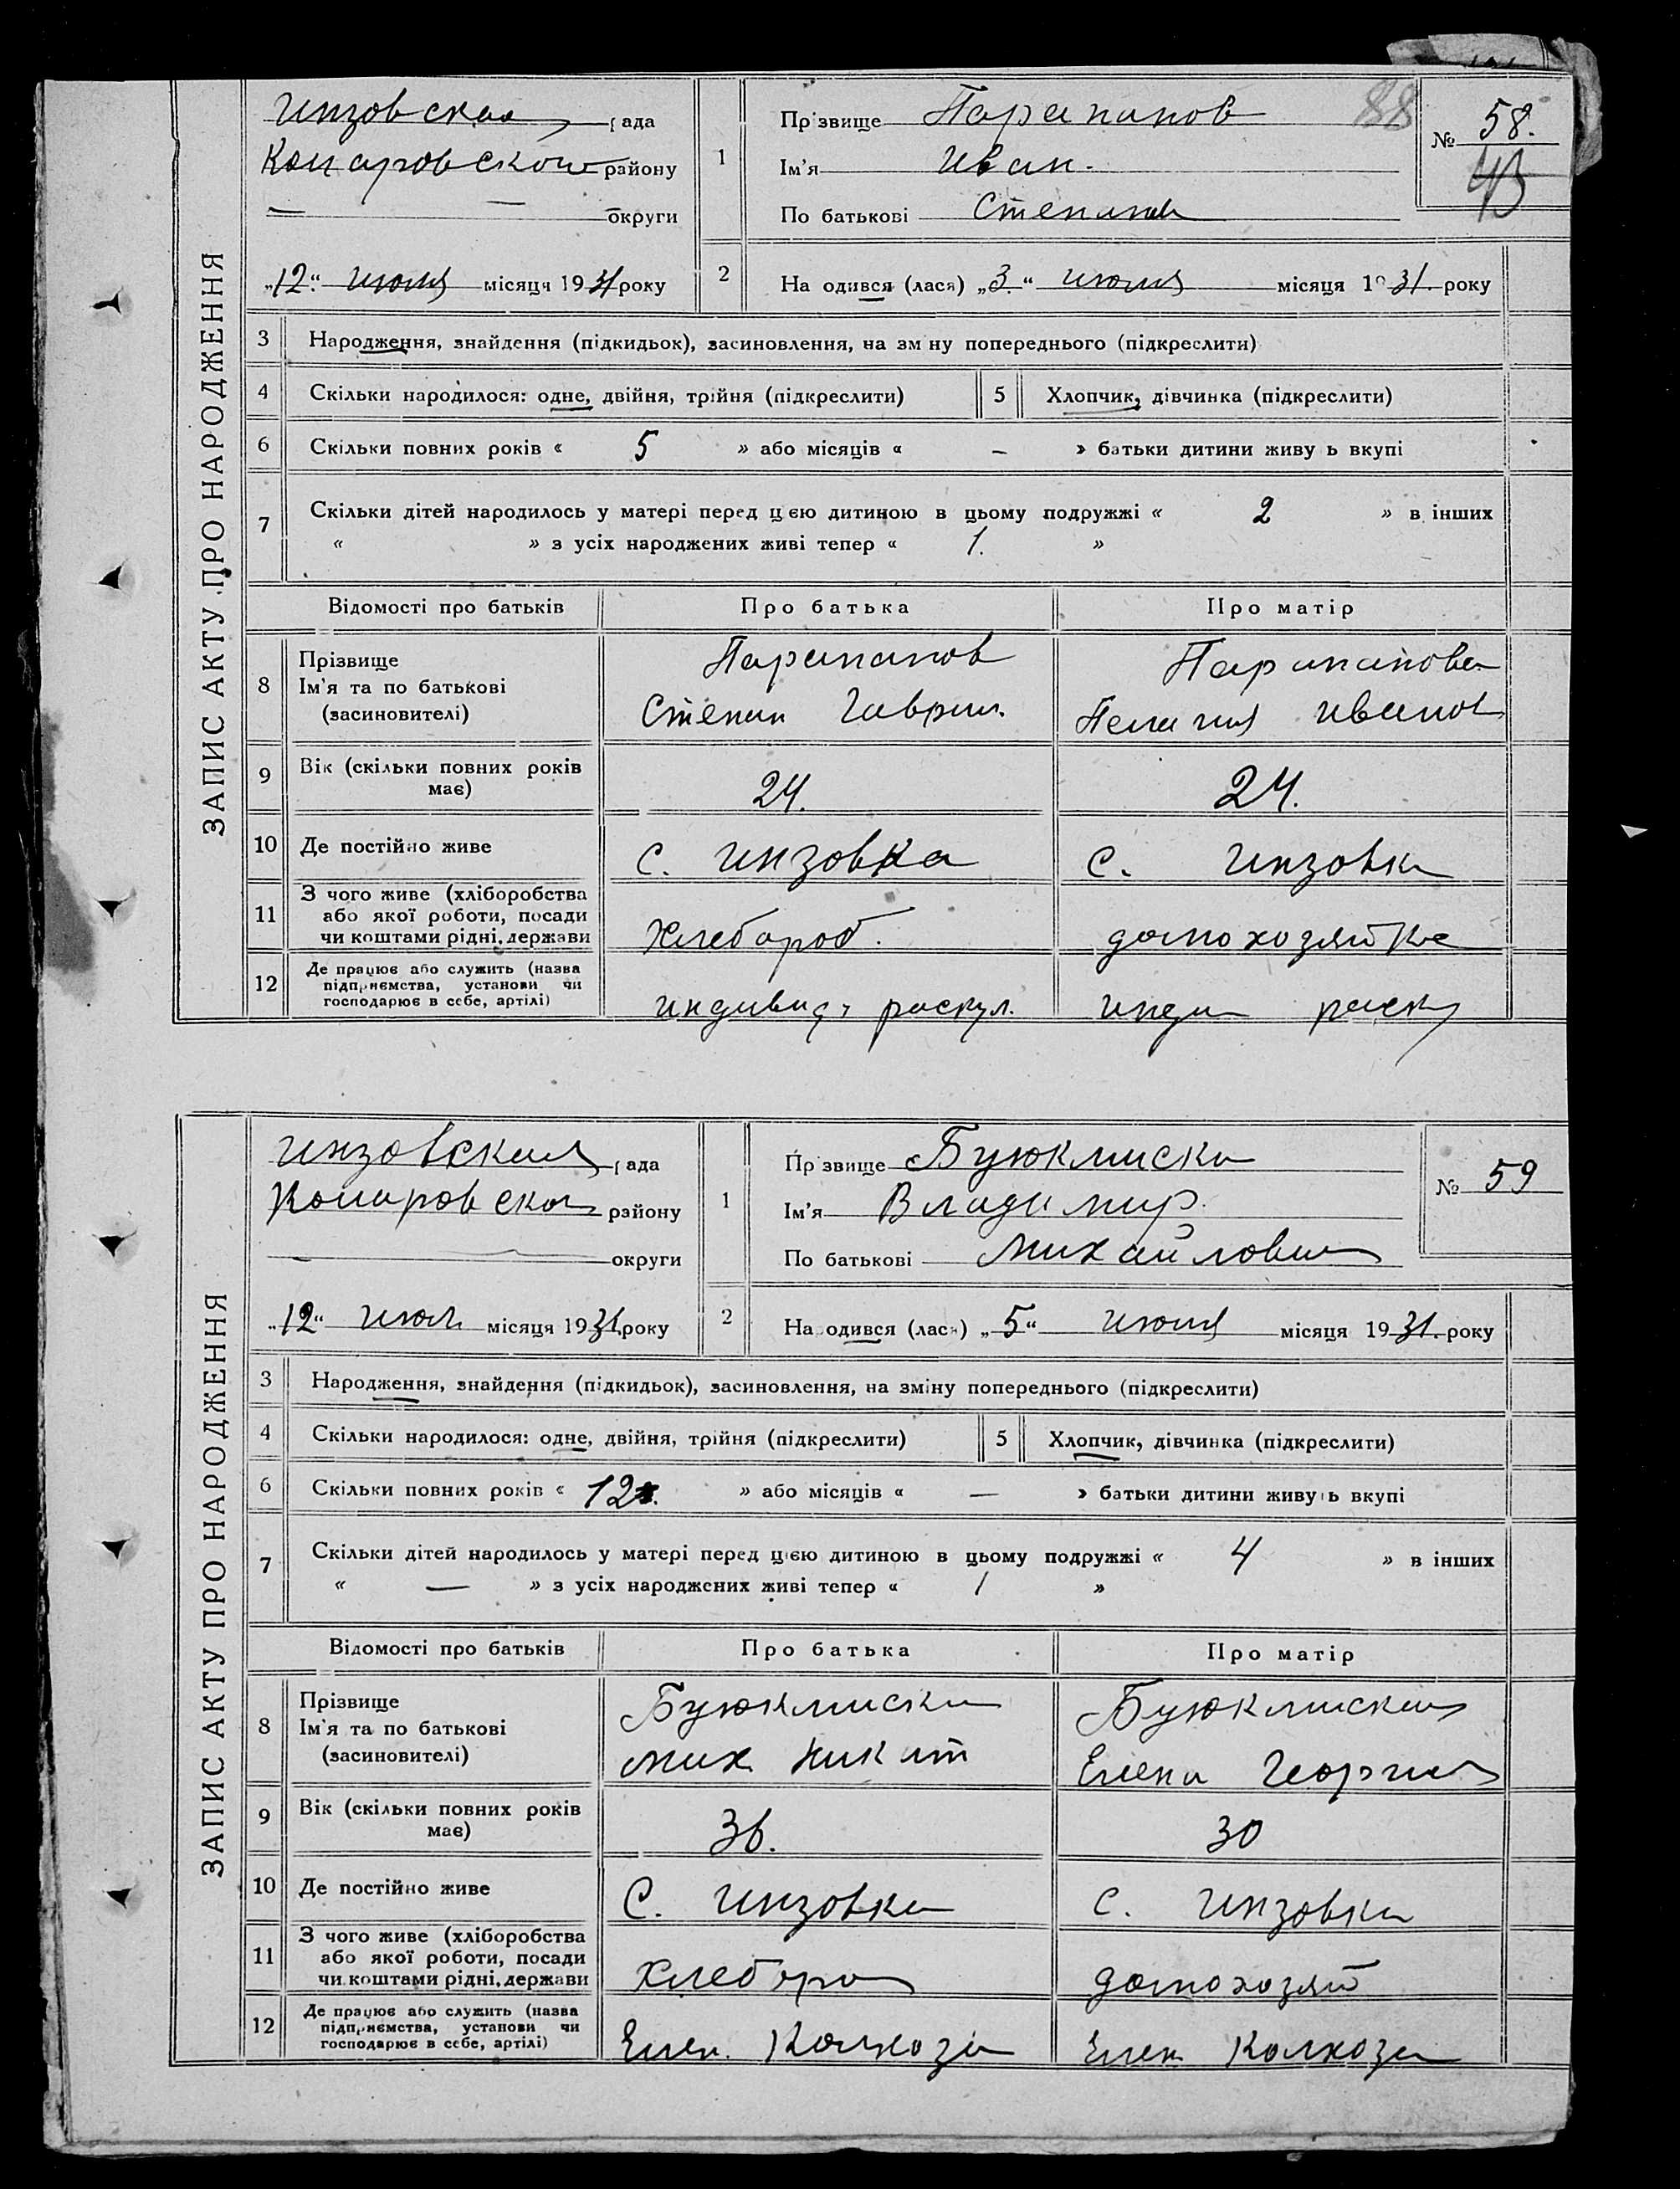 ЗАПИС АКТУ ПРО НАРОДЖЕННЯ
Инзовская рада
Комаровского району
— — округи
„12“ июля місяця 1931 року
1
Прізвище Парапанов
Ім'я Иван.
По батькові Степанов
88
№ 58.
43
2
Народився (лася) „3.“ июля місяця 1931. року
3 Народження, знайдення (підкидьок), засиновлення, на зміну попереднього (підкреслити)
4 Скільки народилося: одне, двійня, трійня (підкреслити)
5 Хлопчик, дівчинка (підкреслити)
6 Скільки повних років « 5 » або місяців « – » батьки дитини живуть вкупі
7 Скільки дітей народилось у матері перед цією дитиною в цьому подружжі « 2 » в інших
« » з усіх народжених живі тепер « 1. »
Відомості про батьків Про батька Про матір
8 Прізвище
Ім'я та по батькові
(засиновителі)
Парапанов
Степан Гаврил.
Парапанова
Пелагия Иванов
9 Вік (скільки повних років
має)
24. 24.
10 Де постійно живе с. Инзовка с. Инзовка
11 З чого живе (хліборобства
або якої роботи, посади
чи коштами рідні, держави
Хлебороб. домохозяйка
12 Де працює або служить (назва
підприємства, установи чи
господарює в себе, артілі)
индивид, раскул. инди раску
ЗАПИС АКТУ ПРО НАРОДЖЕННЯ
Инзовская рада
Комаровского району
— округи
„12“ июля місяця 1931 року
1
Прізвище Буюклиски
Ім'я Владимир.
По батькові Михайлович
№ 59
2
Народився (лася) „5“ июля місяця 1931. року
3 Народження, знайдення (підкидьок), засиновлення, на зміну попереднього (підкреслити)
4 Скільки народилося: одне, двійня, трійня (підкреслити)
5 Хлопчик, дівчинка (підкреслити)
6 Скільки повних років « 12 » або місяців « — » батьки дитини живуть вкупі
7 Скільки дітей народилось у матері перед цією дитиною в цьому подружжі « 4 » в інших
« — » з усіх народжених живі тепер « 1 »
Відомості про батьків Про батька Про матір
8 Прізвище
Ім'я та по батькові
(засиновителі)
Буюклиски
Мих. Никит
Буюклиская
Елена Георгиев
9 Вік (скільки повних років
має)
36. 30
10 Де постійно живе С. Инзовка с. Инзовка
11 З чого живе (хліборобства
або якої роботи, посади
чи коштами рідні, держави
Хлебороб домохозяй
12 Де працює або служить (назва
підприємства, установи чи
господарює в себе, артілі)
Член. Колхоза Член Колхоза